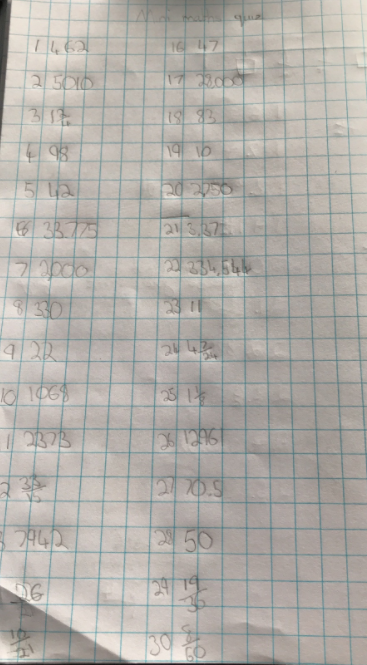 Mini maths quiz
1 462
2 5010
3
4 98
5 42
6 33.775
7 2,000
8 330
9 22
10 1068
1 2373
2
7942
26
10/21
16 47
17 22,000
18 83
19 10
20 2750
21 3.37
22 334,544
23 11
24
25
26 1296
27 70.5
28 50
29 19/35
30